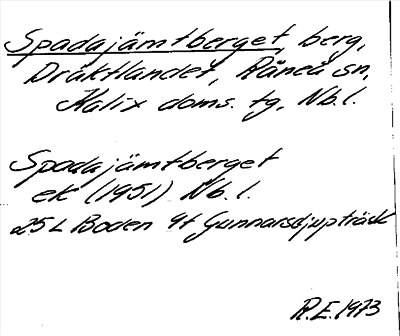 Spadajämtberget, berg,
Dräktlandet, Råneå sn,
Kalix doms. tg, Nb.l.
Spadajämtberget
ek (1951) Nb.l.
25L Boden 9f Gunnarsdjupträsk
R.E.1973